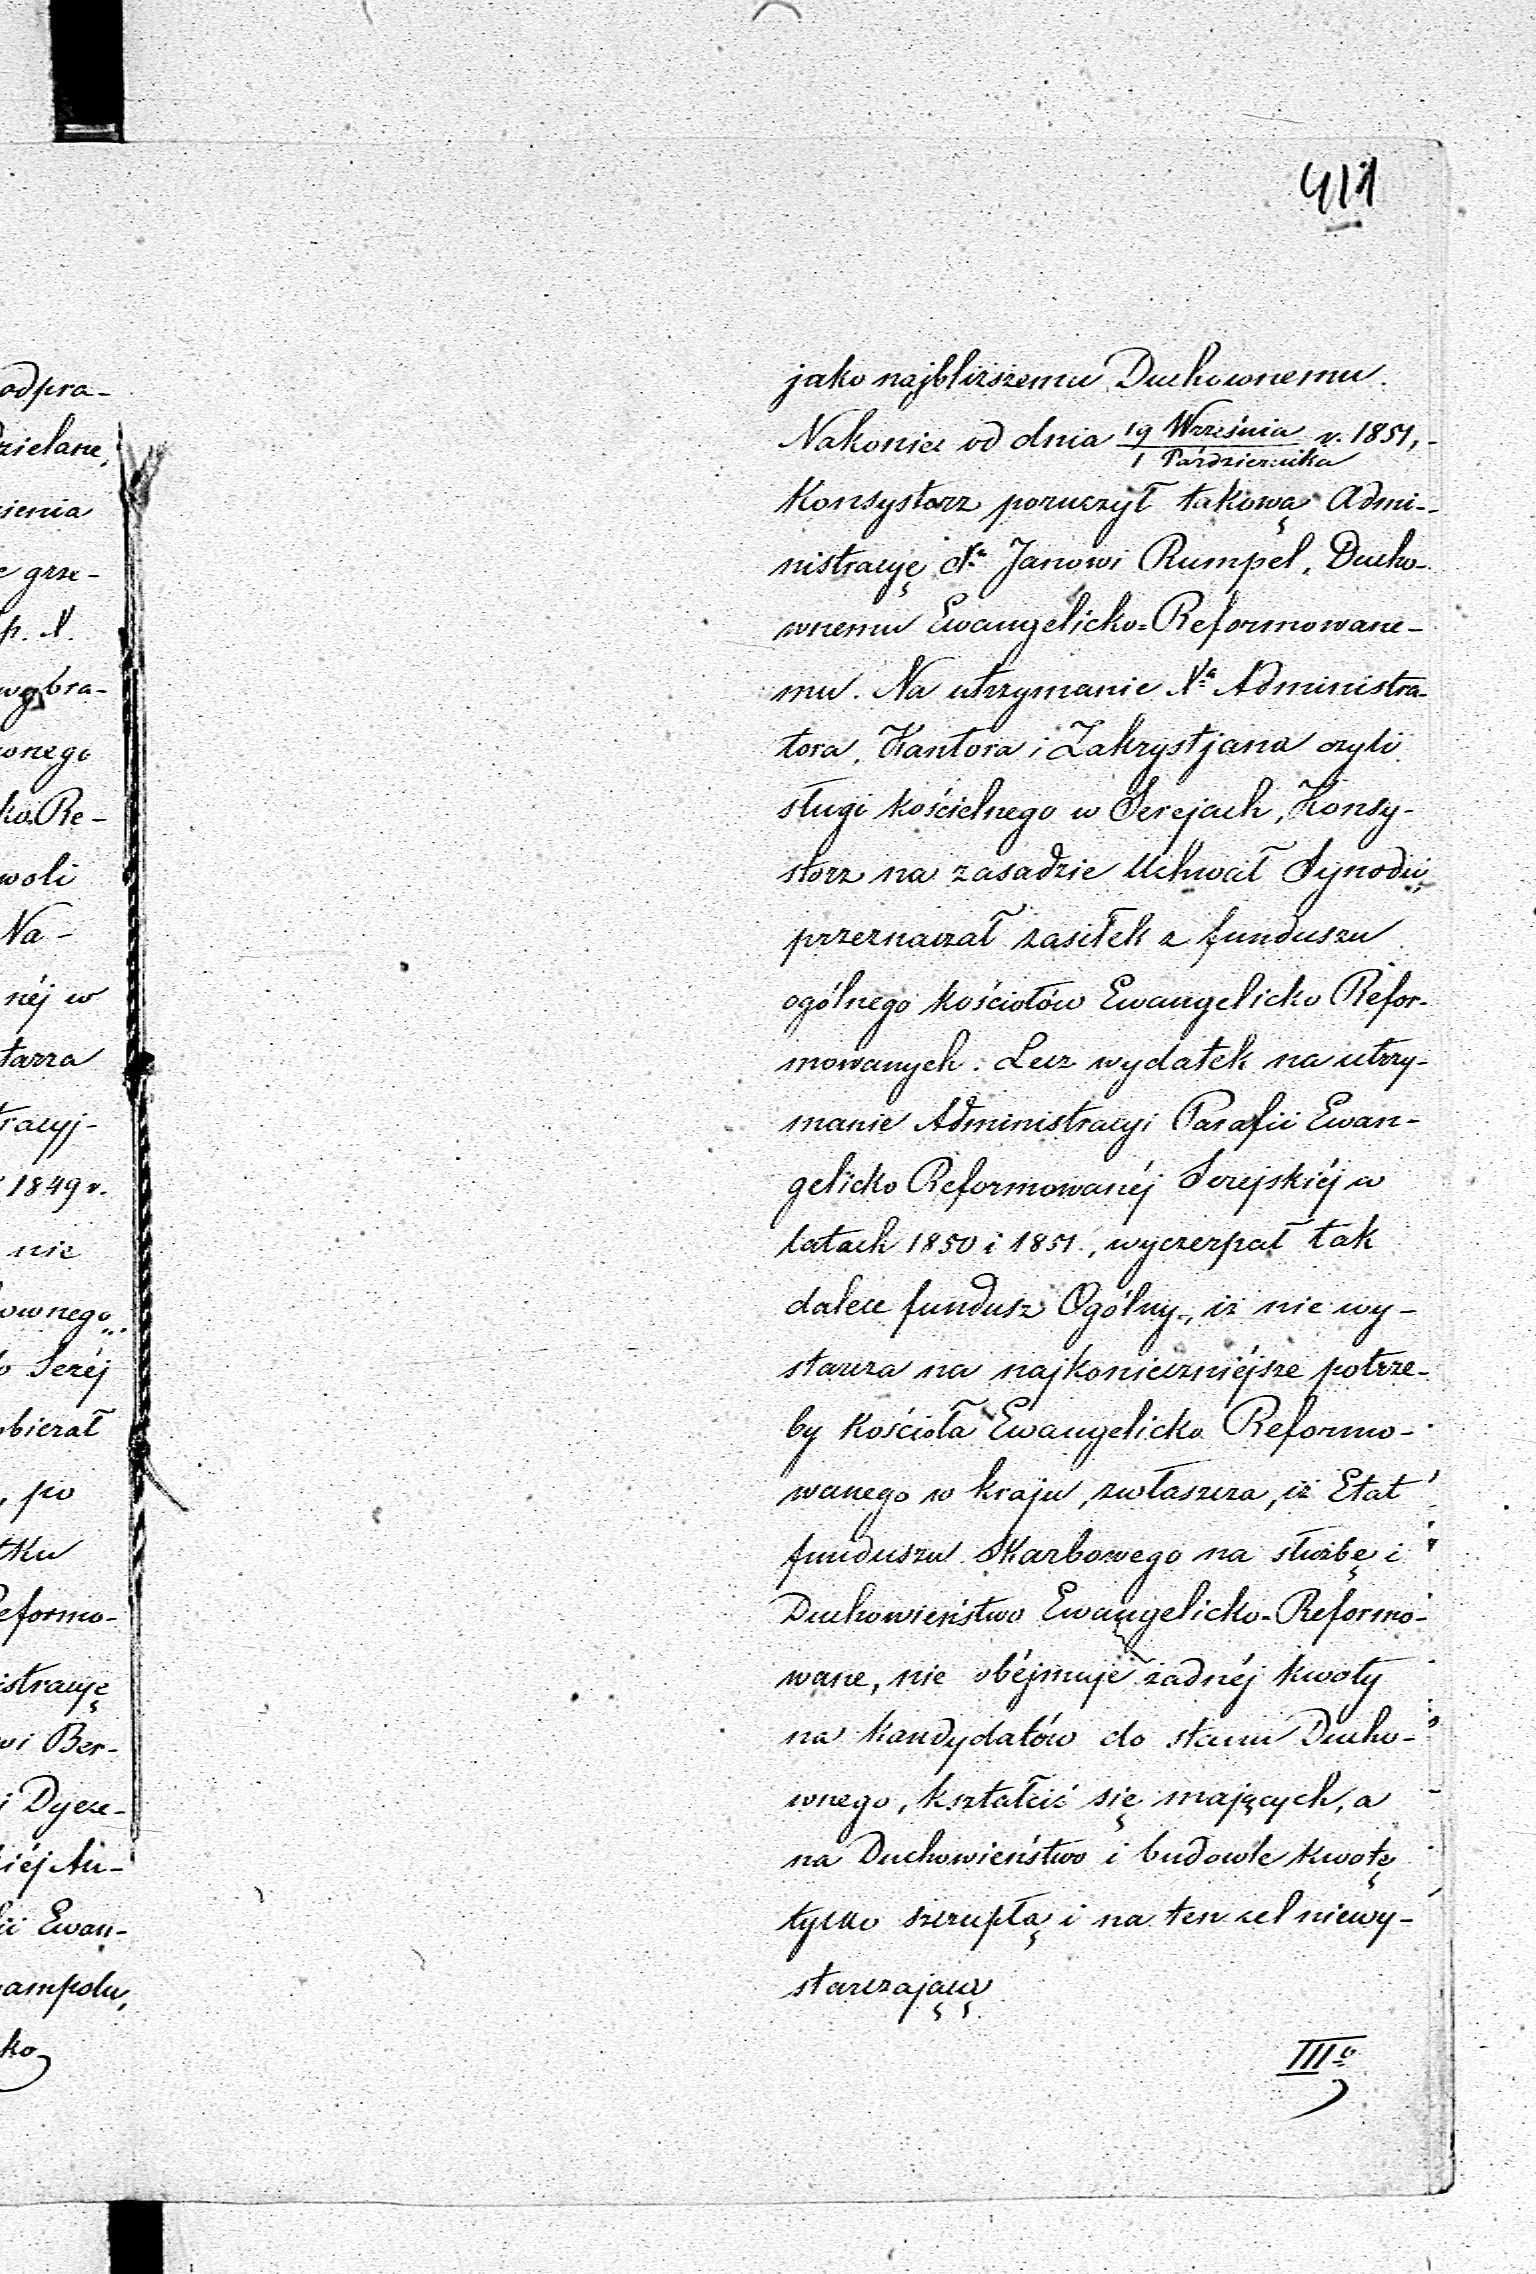 411
odpra-
dzielane,
ienia
e grze-
p. X.
wybra-
wnego
ko Re-
woli
Na-
néj w
tarza
tracyj-
1849 r.
nie
ownego
o Seréj
obierał
, po
tku
Reformo-
istracyę
wi Ber-
i Dyece-
kiéj Au-
ii Ewan-
ampolu,
ko
jako najbliższemu Duchownemu.
Nakoniec od dnia 19 Września / 1 Października r. 1851,
Konsystorz poruczył takową Admi-
nistracyę Xu Janowi Rumpel, Ducho-
wnemu Ewangelicko-Reformowane-
mu. Na utrzymanie Xa Administra-
tora, Kantora i Zakrystjana czyli
sługi kościelnego w Serejach, Konsy-
storz na zasadzie Uchwał Synodu,
przeznaczał zasiłek z funduszu
ogólnego kościołów Ewangelicko Refor-
mowanych. Lecz wydatek na utrzy-
manie Administracyi Parafii Ewan-
gelicko Reformowanéj Serejskiéj w
latach 1850 i 1851., wyczerpał tak
dalece fundusz Ogólny, iż nie wy-
starcza na najkonieczniéjsze potrze-
by Kościoła Ewangelicko Reformo-
wanego w kraju, zwłaszcza, iż Etat
funduszu Skarbowego na służbę i
Duchowieństwo Ewangelicko-Reformo-
wane, nie obéjmuje żadnéj kwoty
na kandydatów do stanu Ducho-
wnego, kształcić się mających, a
na Duchowieństwo i budowle kwotę
tylko szczupłą i na ten cel niewy-
starczającą
IIIo